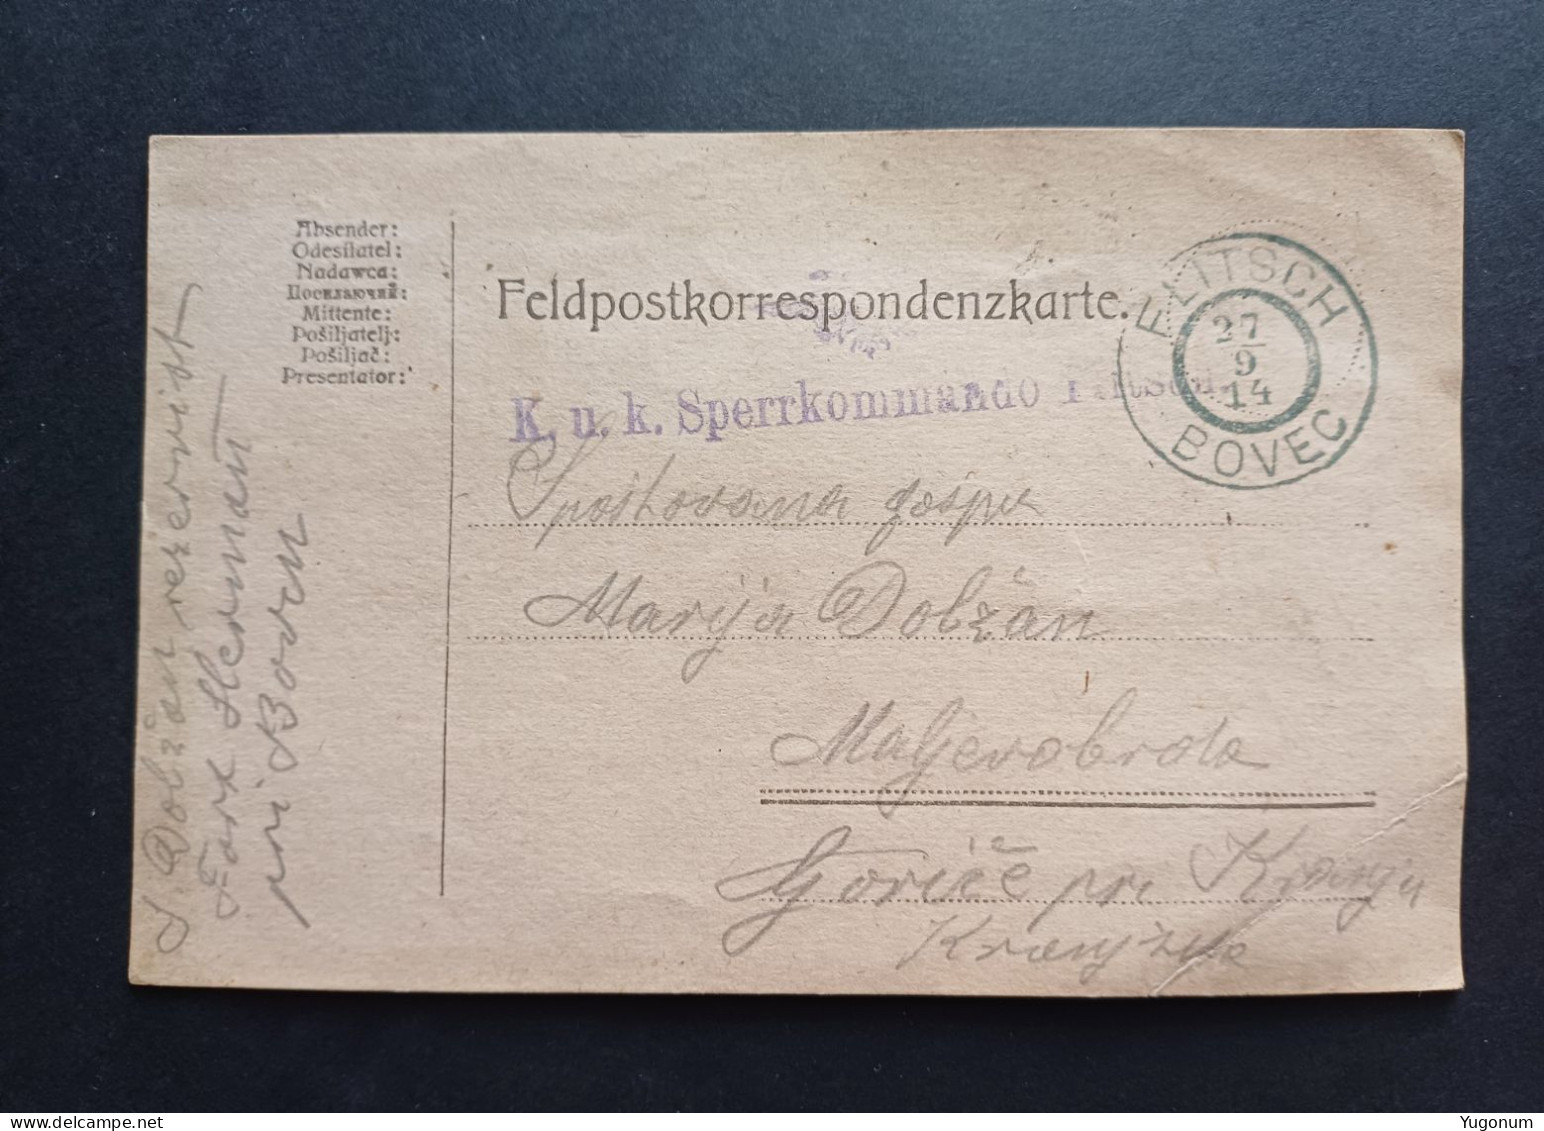 Absender:
Odesílatel:
Nadawca:
Посилаючий:
Mittente:
Pošiljatelj:
Pošiljač:
Presentator:
Feldpostkorrespondenzkarte.
K. u. k. Sperrkommando Flitsch
FLITSCH
27
9
14
BOVEC
Spoštovana gospa
Marija Dolžan
Goriče pri Kranju
Kranjsko
J. Dolžan rezervist
Fort Herman
pri Bovcu
Yugonum
delcampe.net